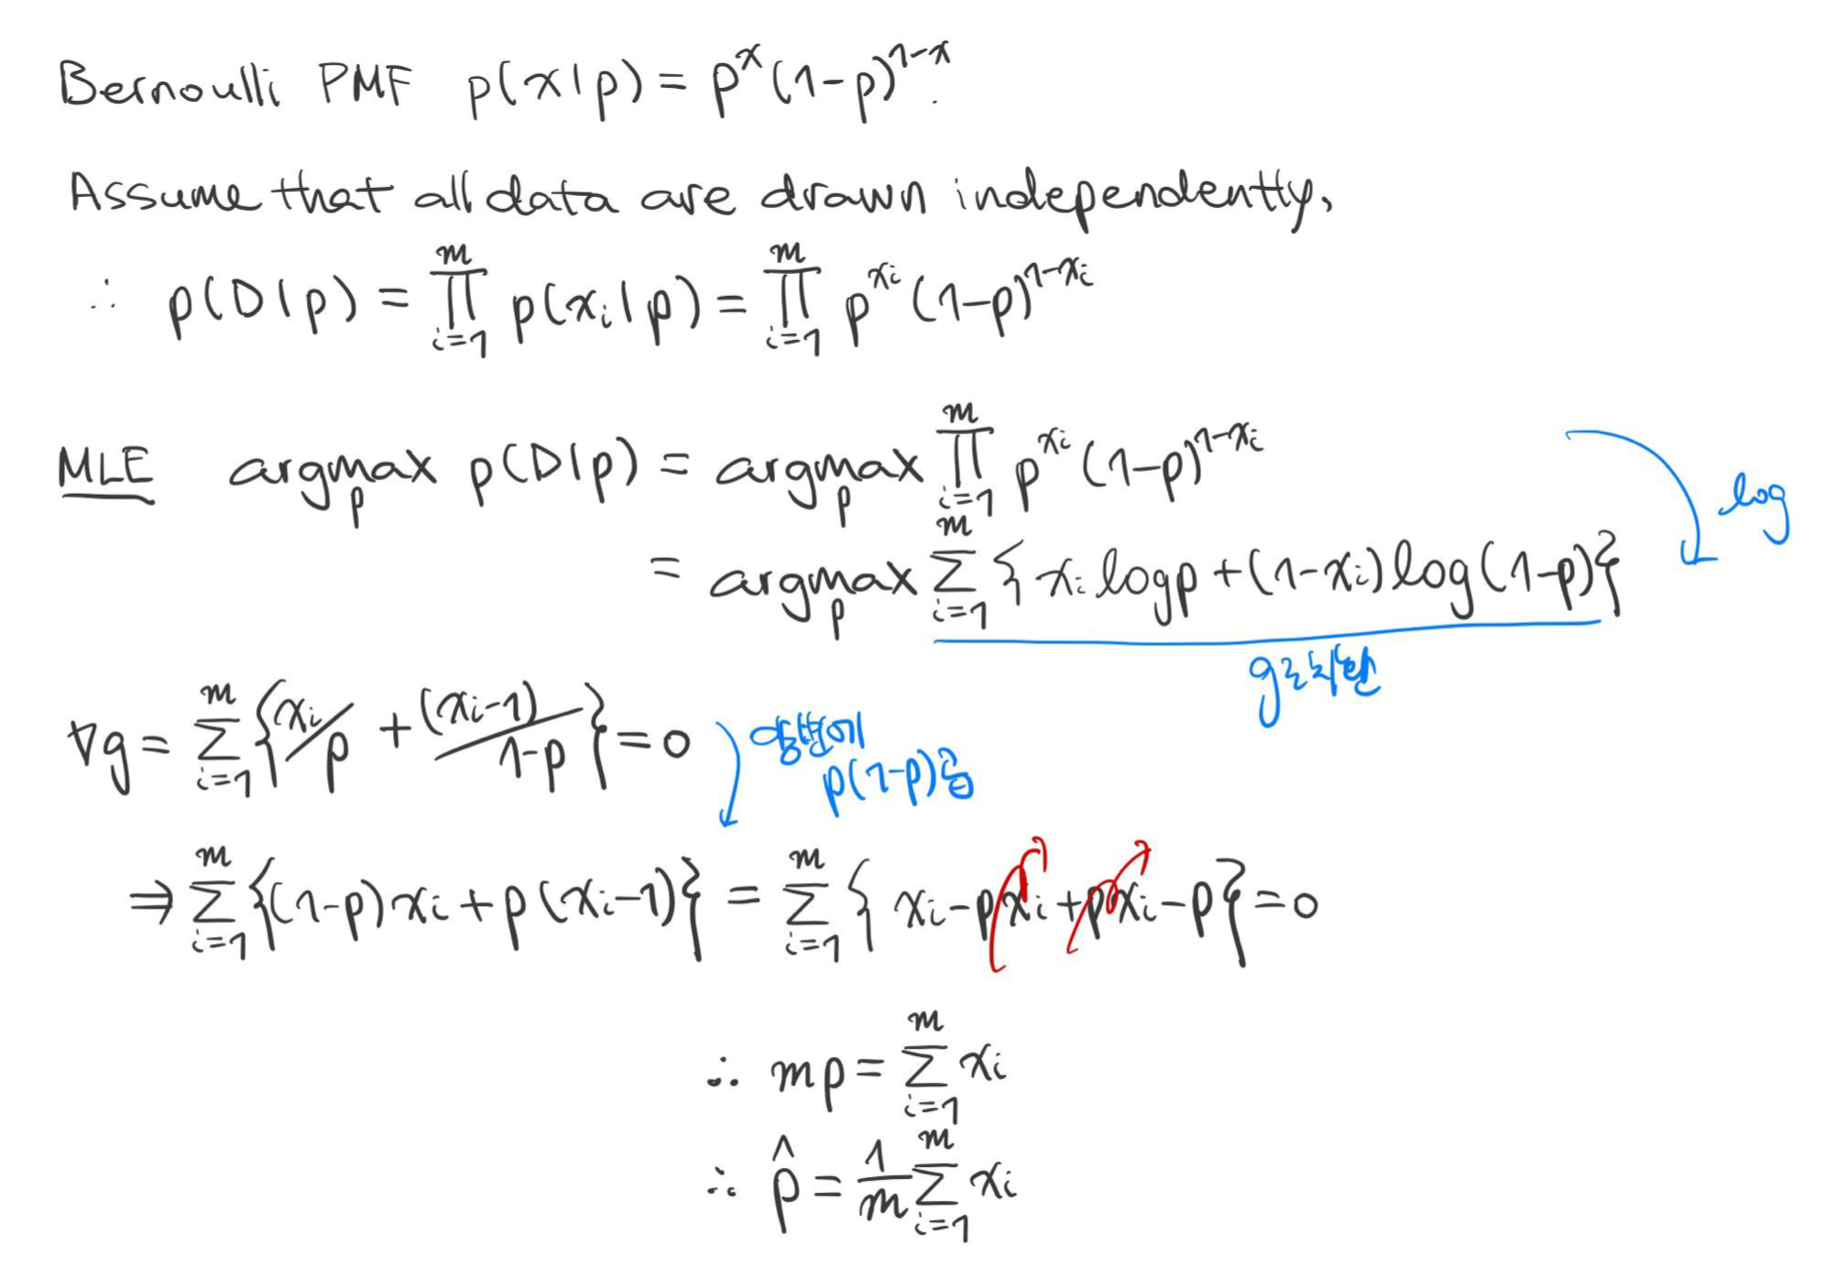 Bernoulli PMF p(x|p) = p^x (1-p)^{1-x}.
Assume that all data are drawn independently,
∴ p(D|p) = ∏_{i=1}^{m} p(x_i|p) = ∏_{i=1}^{m} p^{x_i} (1-p)^{1-x_i}
MLE argmax_p p(D|p) = argmax_p ∏_{i=1}^{m} p^{x_i} (1-p)^{1-x_i}
log
= argmax_p ∑_{i=1}^{m} { x_i log p + (1-x_i) log(1-p) }
g로 치환
∇g = ∑_{i=1}^{m} { x_i/p + (x_i-1)/(1-p) } = 0
양변에
p(1-p)곱
⇒ ∑_{i=1}^{m} {(1-p)x_i + p(x_i-1)} = ∑_{i=1}^{m} { x_i - px_i + px_i - p } = 0
∴ mp = ∑_{i=1}^{m} x_i
∴ p̂ = 1/m ∑_{i=1}^{m} x_i